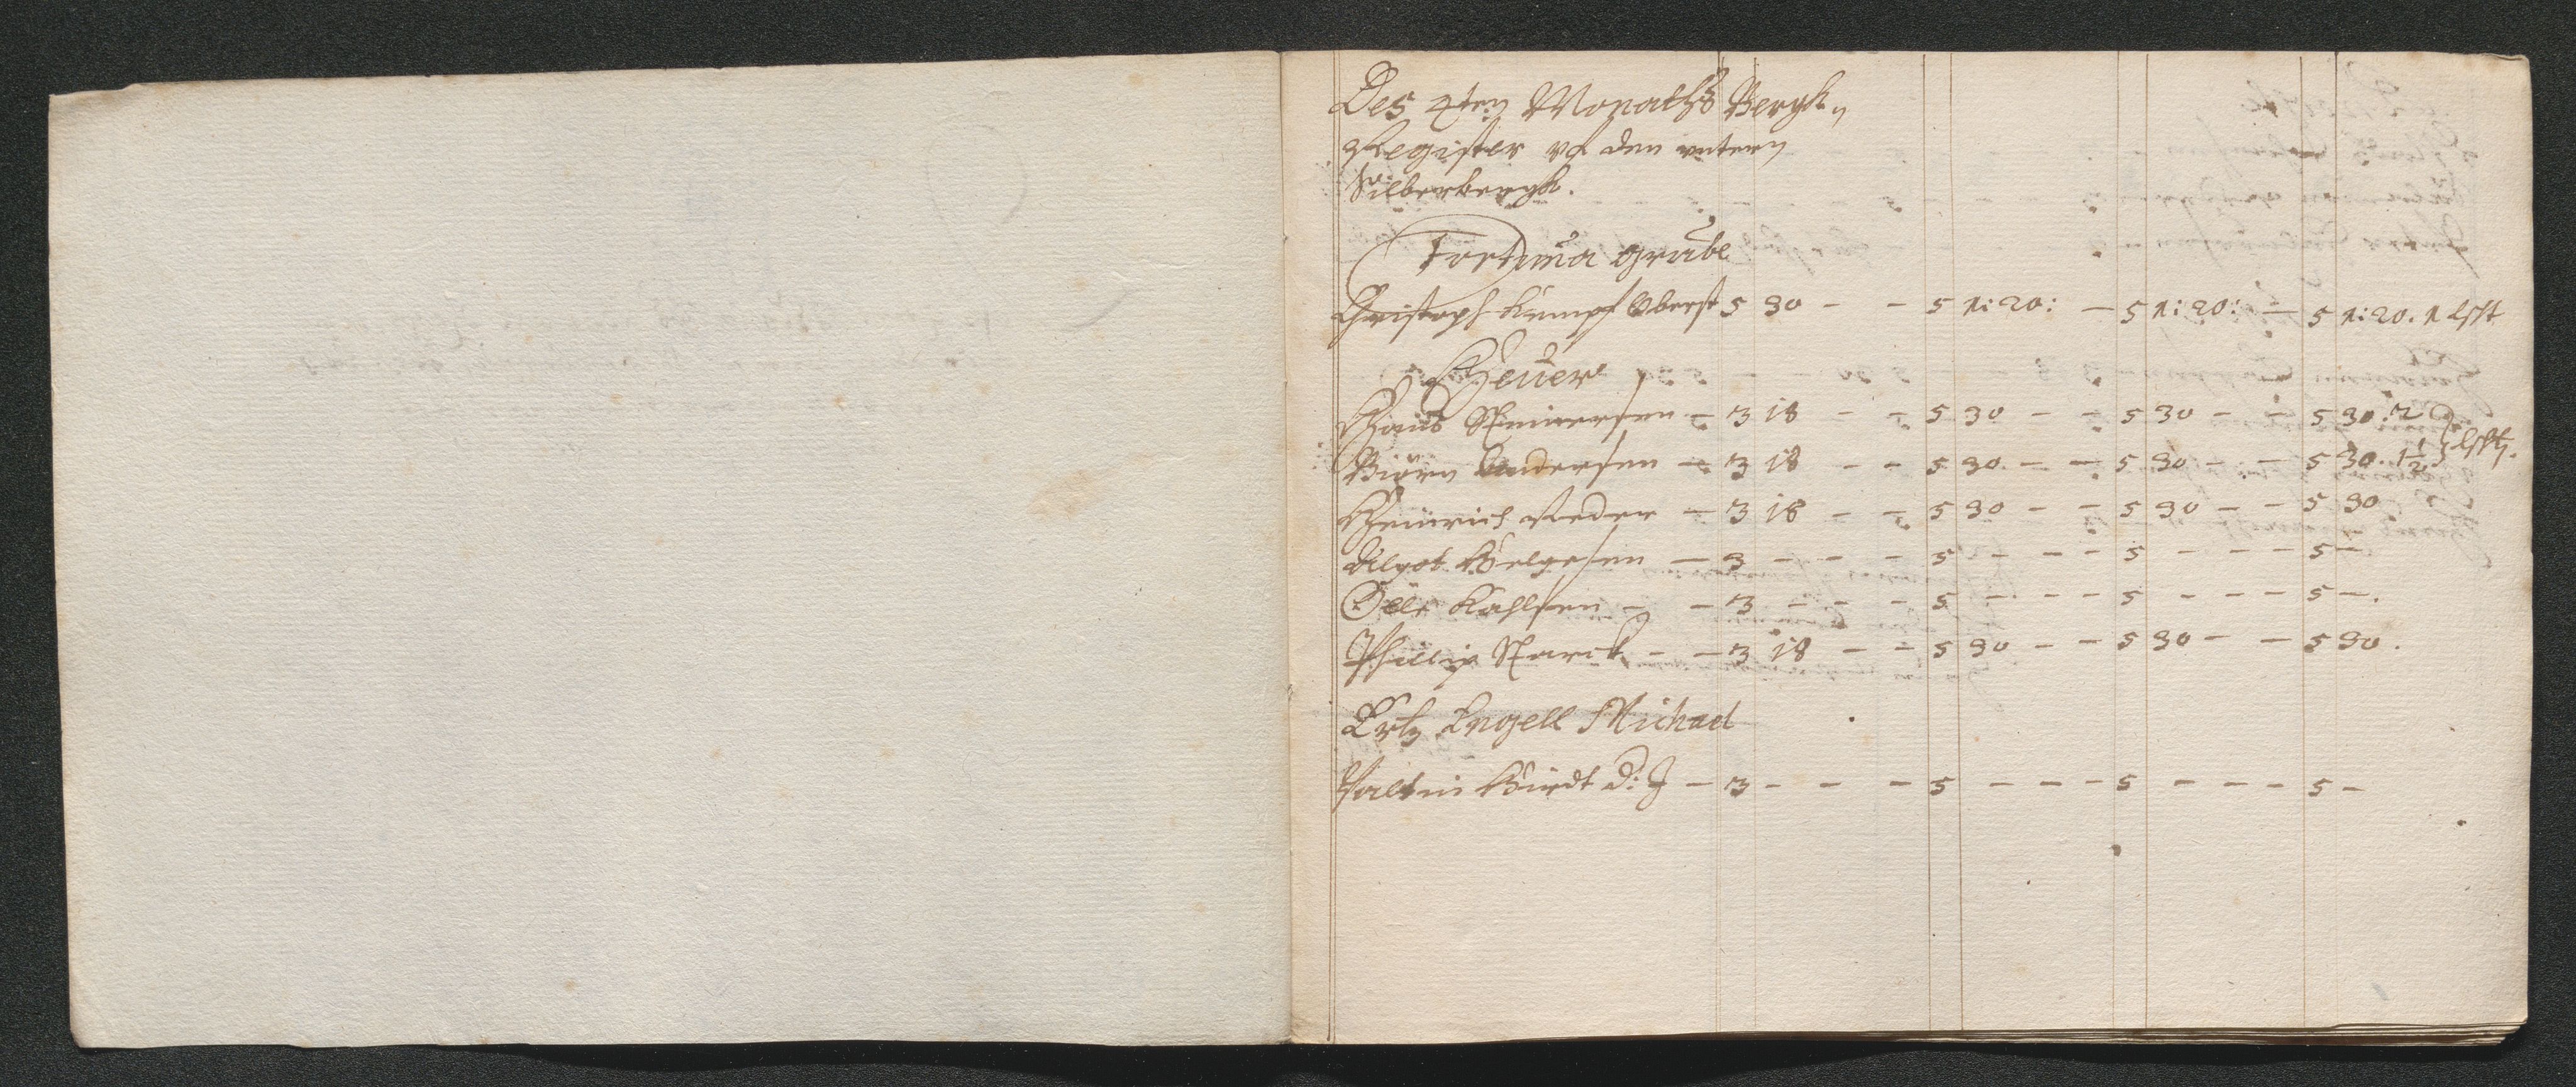 Des 4ten Monathß Bergk„
Register vf den vntern
Silberbergk.
Fortuna grube
Christoph Kumpf Oberst 5 30 - - 5 1:20: - 5 1:20: - 5 1:20. 1 lßt
Heüer
Hanß Steinersen - 3 18 - - 5 30 - - 5 30 - - 5 30 : 2
Biörn Andersen - 3 18 - - 5 30 - - 5 30 - - 5 30. 1½
Heinrich Reder - 3 18 - - 5 30 - - 5 30 - - 5 30
Algot Helgesen - 3 - - - 5 - - - 5 - - - 5 -
Olle Kahlsen - - 3 - - - 5 - - - 5 - - - 5 -.
Phillip Starck - - 3 18 - - 5 30 - - 5 30 - - 5 30.
Ertz Engell Michael
Valtin Hirdt d: J - 3 - - - 5 - - - 5 - - - 5 -